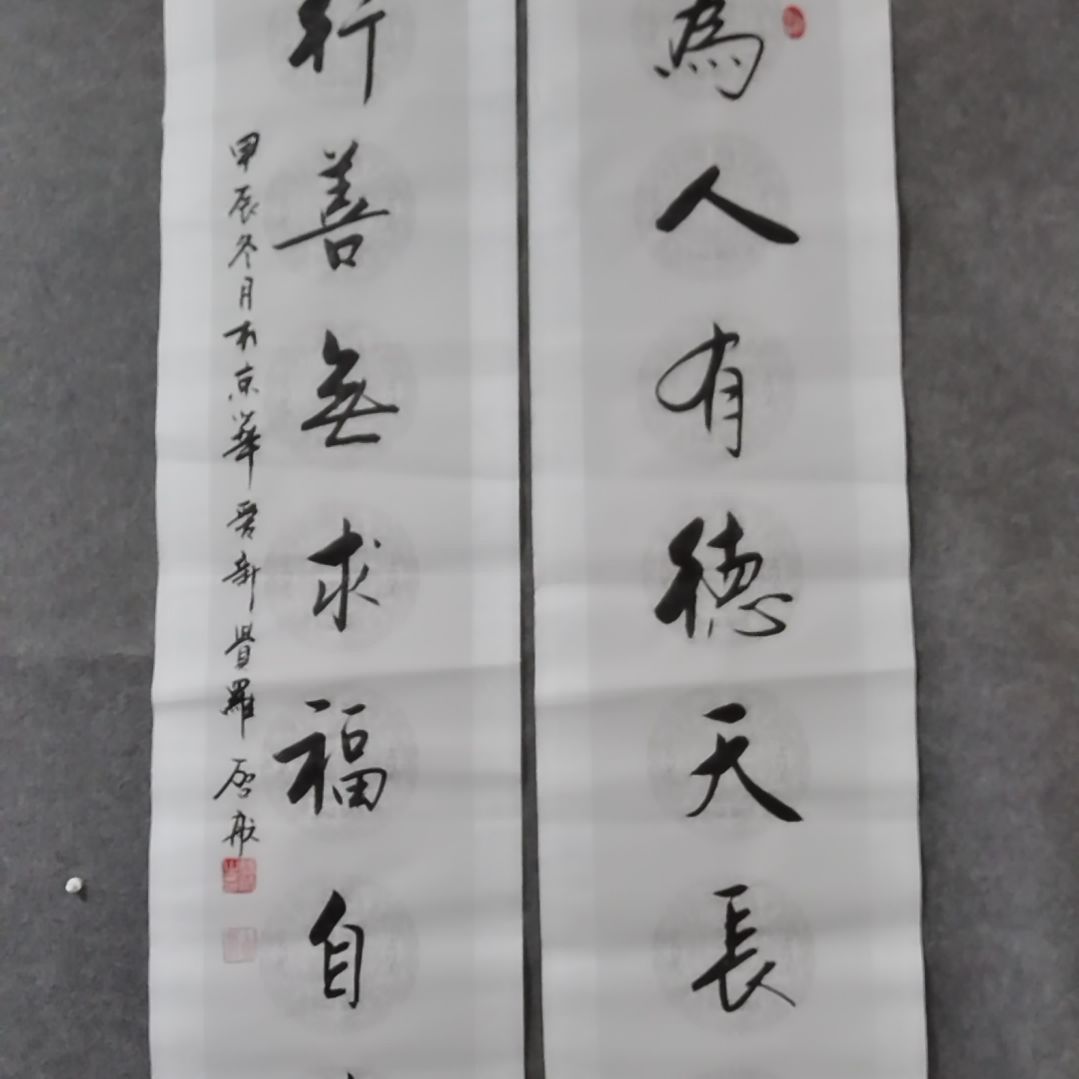 為人有德天長
行善無求福自
甲辰冬月於京華愛新覺羅啟航